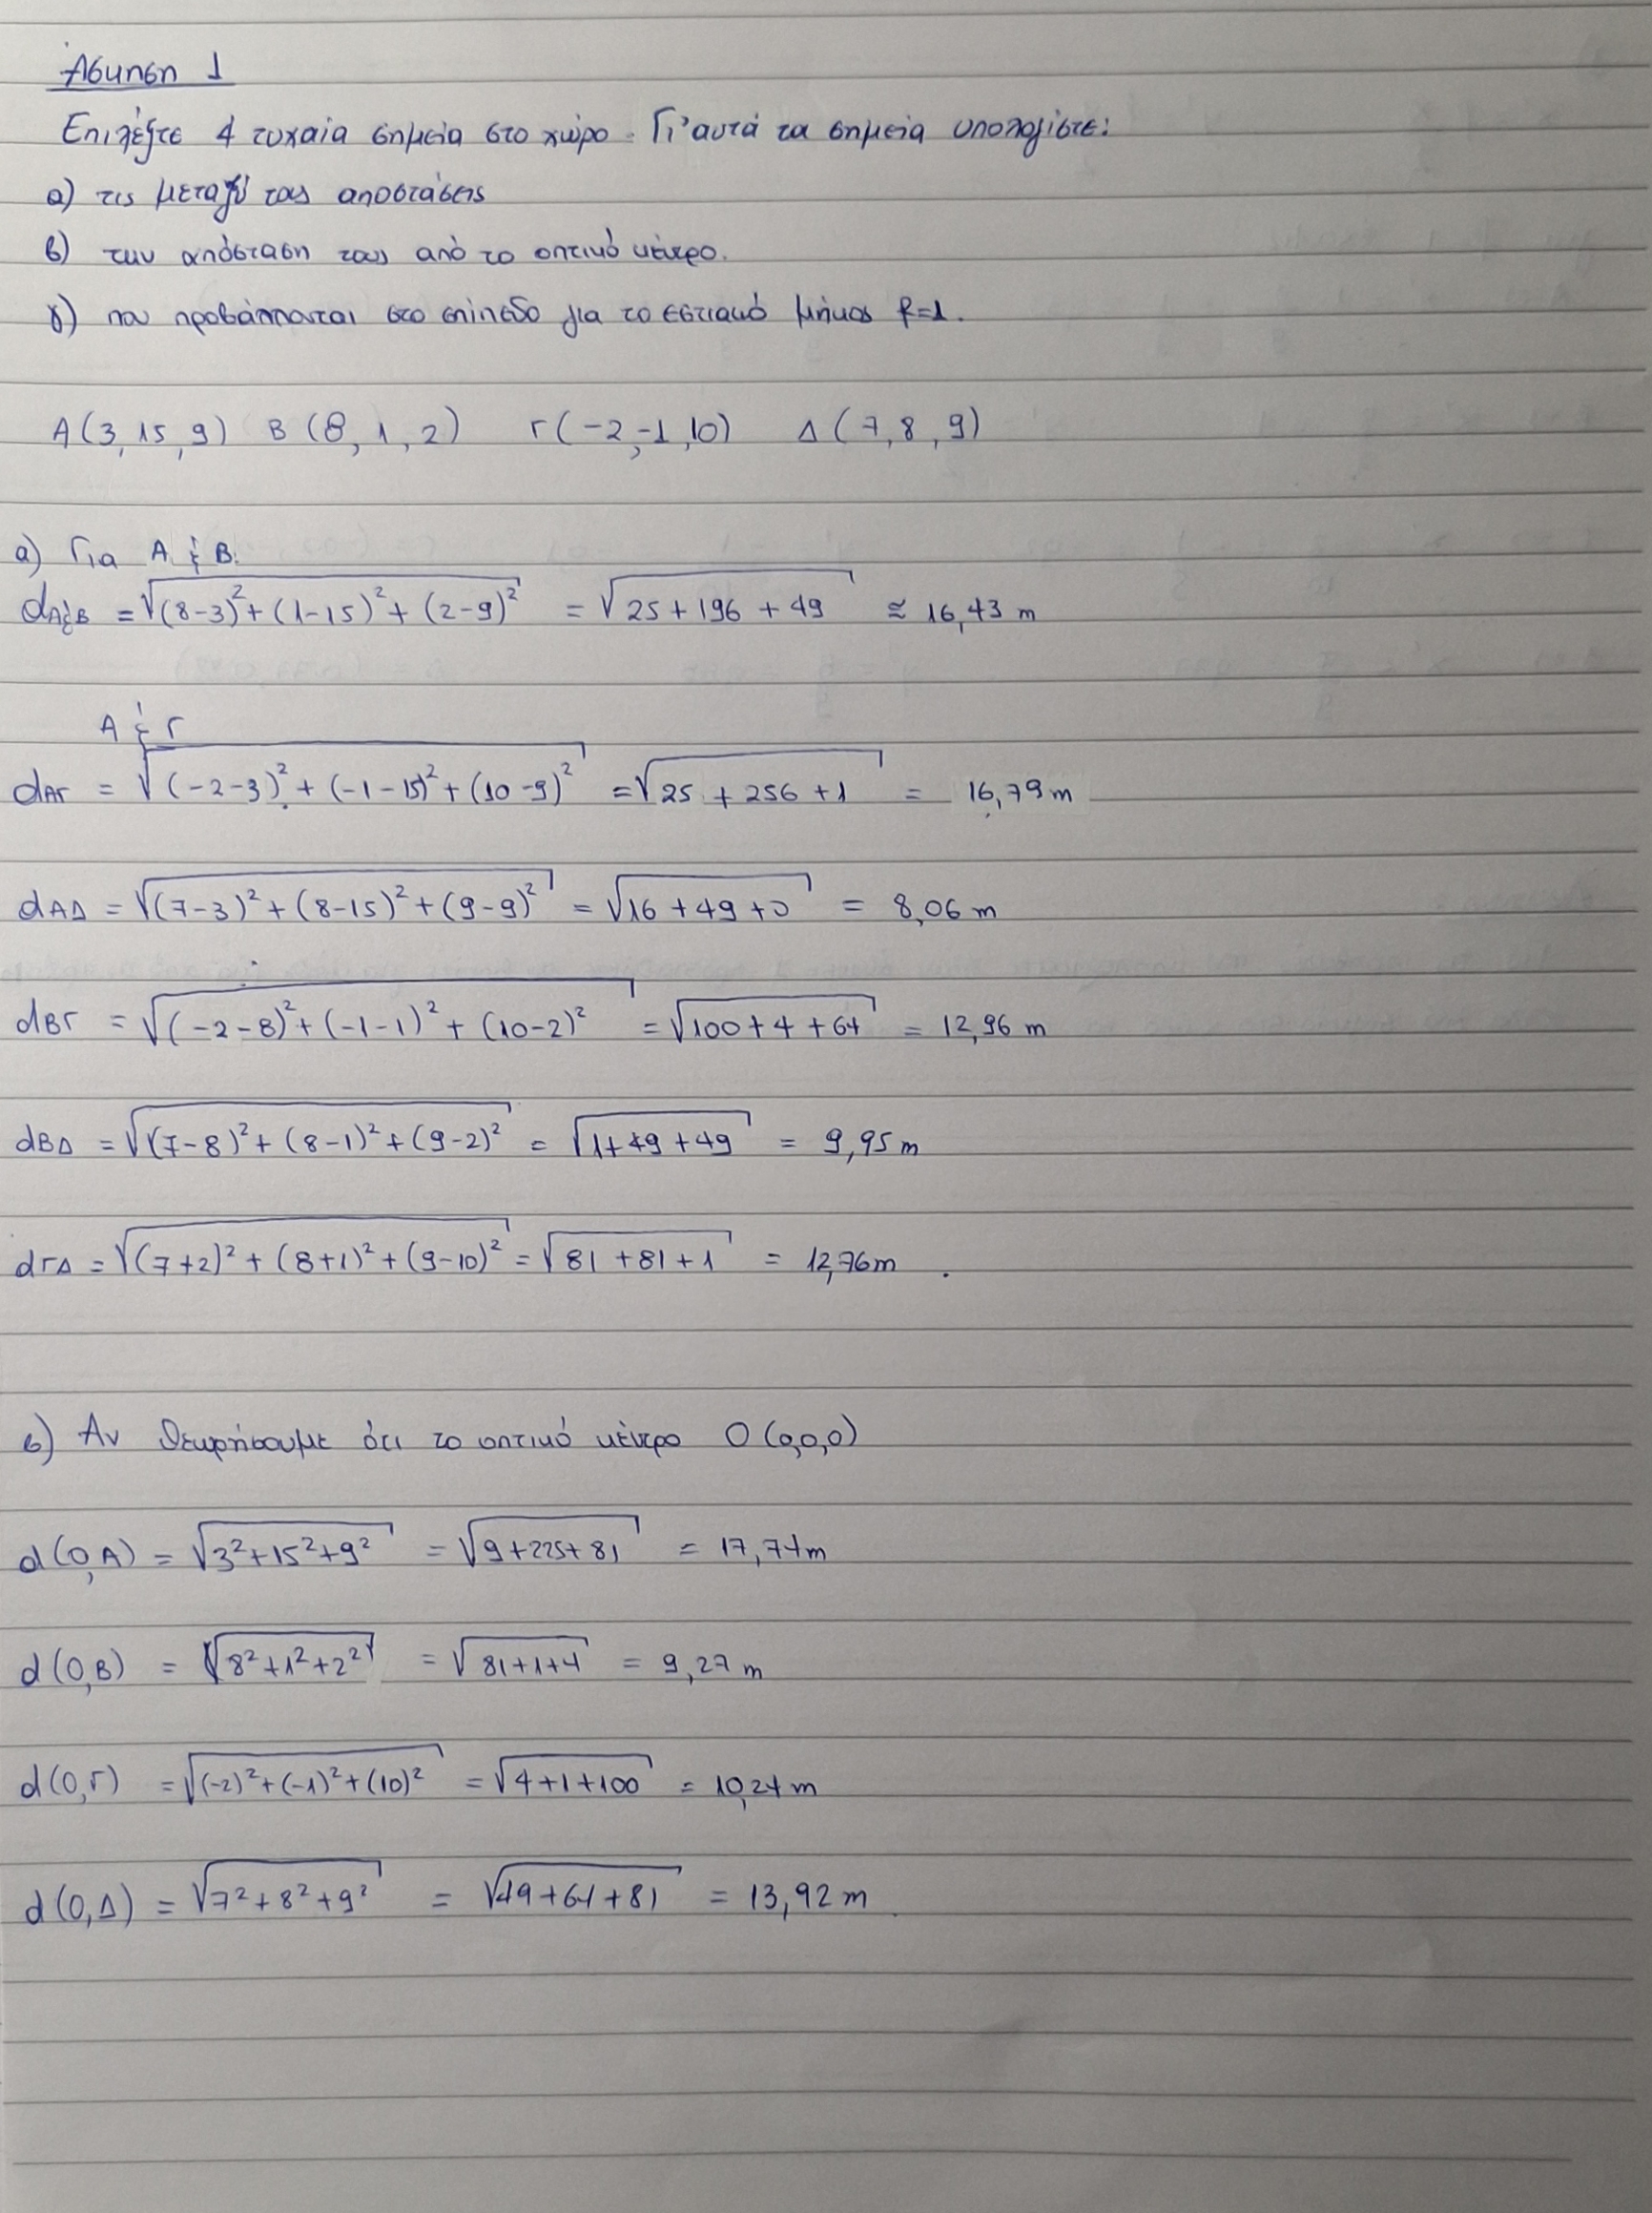 Άσκηση 1
Επιλέξτε 4 τυχαία σημεία στο χώρο. Γι'αυτά τα σημεία υπολογίστε:
α) τις μεταξύ τους αποστάσεις
β) την απόσταση τους από το οπτικό κέντρο.
γ) που προβάλλονται στο επίπεδο για το εστιακό μήκος f=1.
Α(3,15,9) Β(8,1,2) Γ(-2,-1,10) Δ(7,8,9)
α) Για Α & Β.
dΑ&Β = √(8-3)²+(1-15)²+(2-9)² = √25+196+49 ≈ 16,43 m
Α & Γ
dΑΓ = √(-2-3)²+(-1-15)²+(10-9)² = √25+256+1 = 16,79 m
dΑΔ = √(7-3)²+(8-15)²+(9-9)² = √16+49+0 = 8,06 m
dΒΓ = √(-2-8)²+(-1-1)²+(10-2)² = √100+4+64 = 12,96 m
dΒΔ = √(7-8)²+(8-1)²+(9-2)² = √1+49+49 = 9,95 m
dΓΔ = √(7+2)²+(8+1)²+(9-10)² = √81+81+1 = 12,76 m.
β) Αν θεωρήσουμε ότι το οπτικό κέντρο Ο(0,0,0)
d(0,Α) = √3²+15²+9² = √9+225+81 = 17,74 m
d(0,Β) = √8²+1²+2² = √81+1+4 = 9,27 m
d(0,Γ) = √(-2)²+(-1)²+(10)² = √4+1+100 = 10,24 m
d(0,Δ) = √7²+8²+9² = √49+64+81 = 13,92 m.